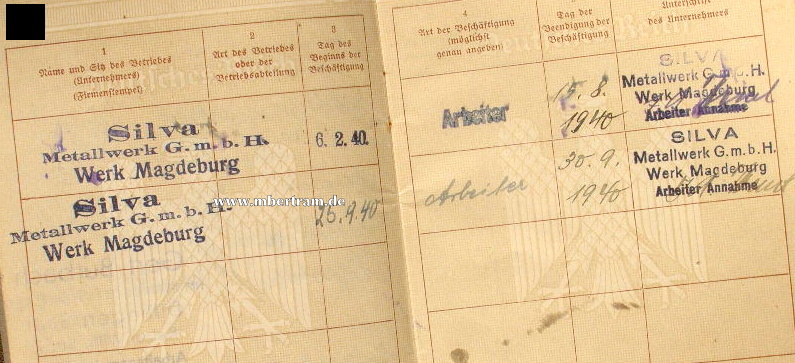 1
Name und Sitz des Betriebes
(Unternehmers)
(Firmenstempel)
2
Art des Betriebes
oder der
Betriebsabteilung
3
Tag des
Beginns der
Beschäftigung
Silva
Metallwerk G.m.b.H.
Werk Magdeburg
6. 2. 40.
Silva
Metallwerk G.m.b.H.
Werk Magdeburg
26.9.40
www.mbertram.de
4
Art der Beschäftigung
(möglichst
genau angeben)
Tag der
Beendigung der
Beschäftigung
Unterschrift
des Unternehmers
Arbeiter
15. 8.
1940
SILVA
Metallwerk G.m.b.H.
Werk Magdeburg
Arbeiter Annahme
Arbeiter
30. 9.
1940
SILVA
Metallwerk G.m.b.H.
Werk Magdeburg
Arbeiter Annahme